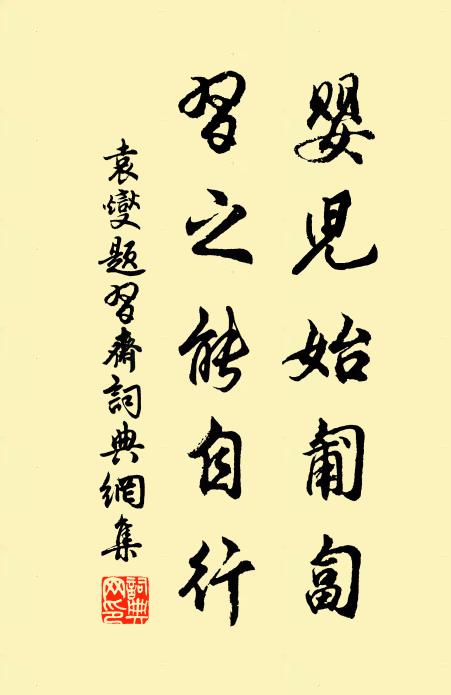 嬰兒始匍匐
習之能自行
袁燮題習齋詞典網集
詞典网印